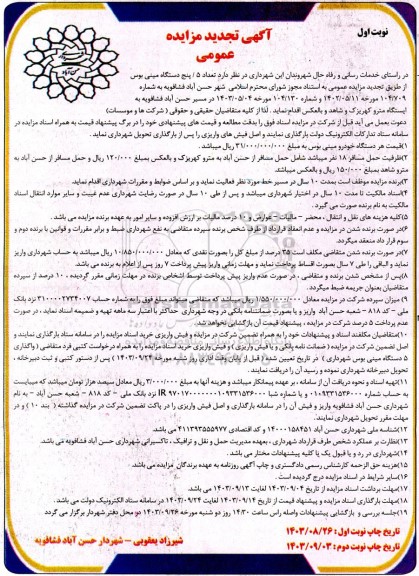 نوبت اول
آگهی تجدید مزایده
عمومی
در راستای خدمات رسانی و رفاه حال شهروندان این شهرداری در نظر دارد تعداد ۵ / پنج دستگاه مینی بوس
از طریق تجدید مزایده عمومی به استناد مجوز شورای محترم اسلامی شهر حسن آباد فشافویه به شماره
۱۰۴/۷۰۹ مورخه ۱۴۰۳/۰۵/۱۱ و شماره ۱۰۴/۱۳۰ مورخه ۱۴۰۳/۰۵/۰۴ در مسیر حسن آباد فشافویه به
ایستگاه مترو کهریزک و شاهد و بالعکس اقدام نماید. لذا از کلیه متقاضیان حقیقی و حقوقی ( شرکت ها و موسسات)
دعوت بعمل می آید قبل از شرکت در مزایده اسناد فوق را بدقت مطالعه و قیمت های پیشنهادی خود را در برگ پیشنهاد قیمت به همراه اسناد مزایده در
سامانه ستاد تدارکات الکترونیک دولت بارگذاری نمایند و اصل فیش های واریزی را پس از بارگذاری تحویل شهرداری نماید.
۱)قیمت هر دستگاه خودرو مینی بوس به مبلغ ۳۱/۰۰۰/۰۰۰/۰۰۰ ریال میباشد.
۲)ظرفیت حمل مسافر ۱۸ نفر میباشد شامل حمل مسافر از حسن آباد به مترو کهریزک و بالعکس بمبلغ ۱۲۰/۰۰۰ ریال و حمل مسافر از حسن آباد به
مترو شاهد بمبلغ ۱۵۰/۰۰۰ ریال و بالعکس میباشد.
۳)برنده مزایده موظف است بمدت ۱۰ سال در مسیر خط مورد نظر فعالیت نماید و بر اساس ضوابط و مقررات شهرداری اقدام نماید.
۴)اسناد مالکیت تا مدت ۱۰ سال در اختیار شهرداری میباشد و پس از طی ۱۰ سال در صورت رضایت شهرداری عدم غیبت و سایر موارد انتقال اسناد
مالکیت به نام برنده صورت می گیرد.
۵)کلیه هزینه های نقل و انتقال، محضر - مالیات - عوارض و ۱۰ درصد مالیات بر ارزش افزوده و سایر امور به عهده برنده مزایده می باشد.
۶)در صورت برنده شدن در مزایده و عدم انعقاد قرارداد از طرف شخص برنده سپرده متقاضی به نفع شهرداری ضبط و برابر مقررات و قوانین با برنده دوم و
سوم قرار داد منعقد میگردد.
۷)در صورت برنده شدن متقاضی مکلف است ۳۵ درصد از مبلغ کل را بصورت نقدی که معادل ۱۰/۸۵۰/۰۰۰/۰۰۰ ریال میباشد به حساب شهرداری واریز
نماید و الباقی را طی ۷ سال بصورت اقساط پرداخت نماید و مهلت زمانی واریز پیش پرداخت ۷ روز پس از اعلام به برنده می باشد.
۸)پس از مشخص شدن برنده و متقاضی، در صورت عدم واریز پیش پرداخت توسط اشخاص برنده در مهلت زمانی مقرر گردیده، ۱۰ درصد از سپرده
متقاضیان بعنوان جریمه ضبط میگردد.
۹) میزان سپرده شرکت در مزایده معادل ۱/۵۵۰/۰۰۰/۰۰۰ ریال میباشد که متقاضی میتواند مبلغ فوق را به شماره حساب ۳۱۰۰۰۰۲۷۳۴۰۰۷ نزد بانک
ملی - کد ۸۱۸ - شعبه حسن آباد واریز و یا بصورت ضمانتنامه بانکی در وجه شهرداری حداکثر با اعتبار سه ماهه تهیه و ضمیمه اسناد نماید، در صورت
عدم پرداخت ۵ درصد شرکت در مزایده، پیشنهاد قیمت آن بازگشایی نخواهد شد.
۱۰)متقاضیان مکلفند اسناد و پیشنهادات خود را به همراه تضمین شرکت در مزایده و فیش واریزی خرید اسناد مزایده را در سامانه ستاد بارگذاری نمایند و
اصل تضمین شرکت در مزایده ( ضمانت نامه بانکی و یا فیش واریزی) و فیش واریزی خرید اسناد مزایده را به همراه درخواست کتبی فرد متقاضی (واگذاری
۵ دستگاه مینی بوس شهرداری ) در تاریخ تعیین شده ( قبل از پایان وقت اداری روز شنبه مورخه ۱۴۰۳/۰۹/۲۴ ) پس از دستور کتبی و ثبت دبیرخانه،
تحویل دبیرخانه شهرداری نموده و رسید آن را دریافت نمایند.
۱۱)تهیه اسناد و نحوه دریافت آن از سامانه، بر عهده پیمانکار میباشد و هزینه آنها به مبلغ ۳/۰۰۰/۰۰۰ ریال معادل سیصد هزار تومان میباشد که میبایست
به حساب شماره ۰۱۰۹۳۳۱۵۳۶۰۰۰ و یا شماره شبا IR ۹۷۰۱۷۰۰۰۰۰۰۰۱۰۹۳۳۱۵۳۶۰۰۰ نزد بانک ملی - کد ۸۱۸ - شعبه حسن آباد - به نام
شهرداری حسن آباد فشافویه واریز و فیش آن را در سامانه بارگذاری و اصل فیش واریزی را در پاکت تضمین شرکت در مزایده گذاشته ( بند ۱۰ ) و در
مهلت مقرر تحویل شهرداری نمایند.
۱۲)شناسه ملی شهرداری حسن آباد ۱۴۰۰۰۱۵۸۴۵۱ و کد اقتصادی ۴۱۱۳۹۳۵۵۵۹۷۷ می باشد.
۱۳)نظارت بر عملکرد شخص طرف قرارداد شهرداری، بعهده مدیریت حمل و نقل و ترافیک، تاکسیرانی شهرداری حسن آباد فشافویه می باشد.
۱۴)شهرداری در رد و یا قبول یک یا کلیه پیشنهادات مختار می باشد.
۱۵)هزینه حق الزحمه کارشناس رسمی دادگستری و چاپ آگهی روزنامه به عهده برندگان مزایده می باشد.
۱۶)سایر شرایط در اسناد مزایده درج گردیده است.
۱۷)مهلت برداشت اسناد مزایده از تاریخ ۱۴۰۳/۰۹/۰۴ لغایت ۱۴۰۳/۰۹/۱۳ می باشد.
۱۸)مهلت بارگذاری اسناد مزایده و پیشنهاد قیمت از تاریخ ۱۴۰۳/۰۹/۱۴ لغایت ۱۴۰۳/۰۹/۲۴ در سامانه ستاد الکترونیک دولت می باشد.
۱۹)جلسه بررسی و بازگشایی پیشنهادات واصله راس ساعت ۱۴/۳۰ روز دو شنبه مورخه ۱۴۰۳/۰۹/۲۶ در محل دفتر شهردار برگزار می گردد
تاریخ چاپ نوبت اول : ۱۴۰۳/۰۸/۲۶
تاریخ چاپ نوبت دوم : ۱۴۰۳/۰۹/۰۳
شیرزاد یعقوبی - شهردار حسن آباد فشافویه